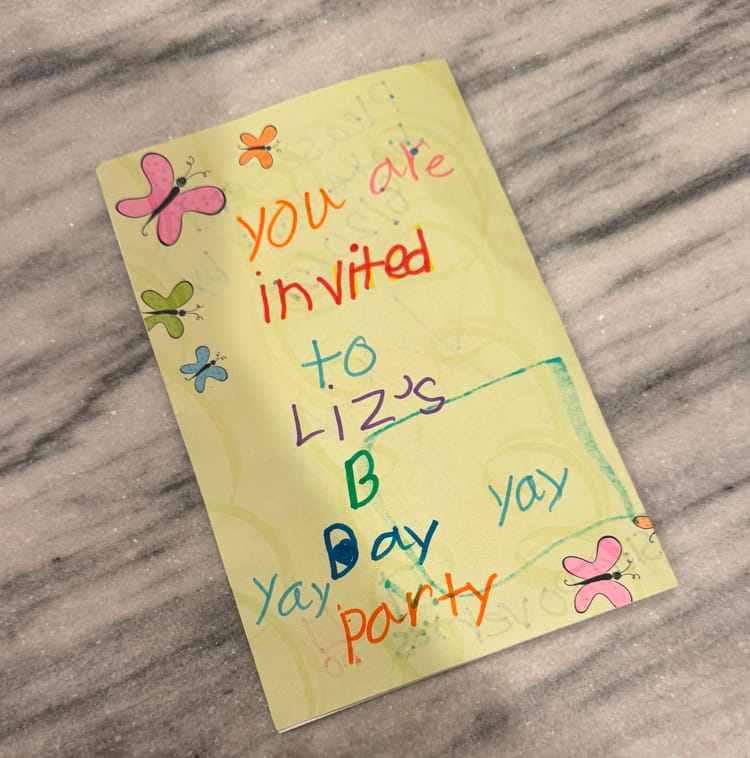 you are
invited
to
Liz's
B
Day
yay
yay
party